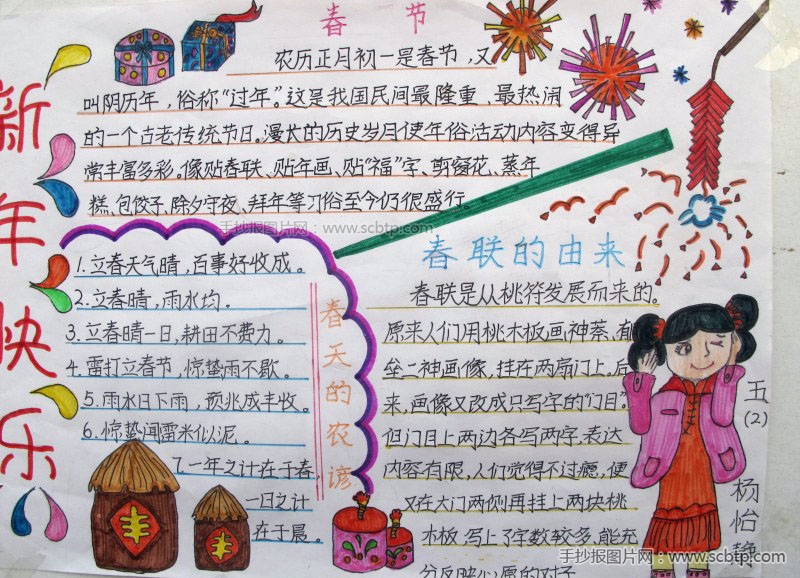 春 节
农历正月初一是春节，又
叫阴历年，俗称“过年”。这是我国民间最隆重、最热闹
的一个古老传统节日。漫长的历史岁月使年俗活动内容变得异
常丰富多彩。像贴春联、贴年画、贴“福”字、剪窗花、蒸年
糕、包饺子、除夕守夜、拜年等习俗至今仍很盛行。
手抄报图片网：www.scbtp.com
新年快乐
1.立春天气晴，百事好收成。
2.立春晴，雨水均。
3.立春晴一日，耕田不费力。
4.雷打立春节，惊蛰雨不歇。
5.雨水日下雨，预兆成丰收。
6.惊蛰闻雷米似泥。
7.一年之计在于春，
一日之计
在于晨。
春天的农谚
丰
丰
春联的由来
春联是从桃符发展而来的。
原来人们用桃木板画神荼、郁
垒二神画像，挂在两扇门上。后
来，画像又改成只写字的“门目”。
但门目上两边各写两字，表达
内容有限，人们觉得不过瘾，便
又在大门两侧再挂上两块桃
木板，写上了字数较多、能充
分反映心愿的对子
五
(2)
杨怡
手抄报图片网：www.scbtp.com